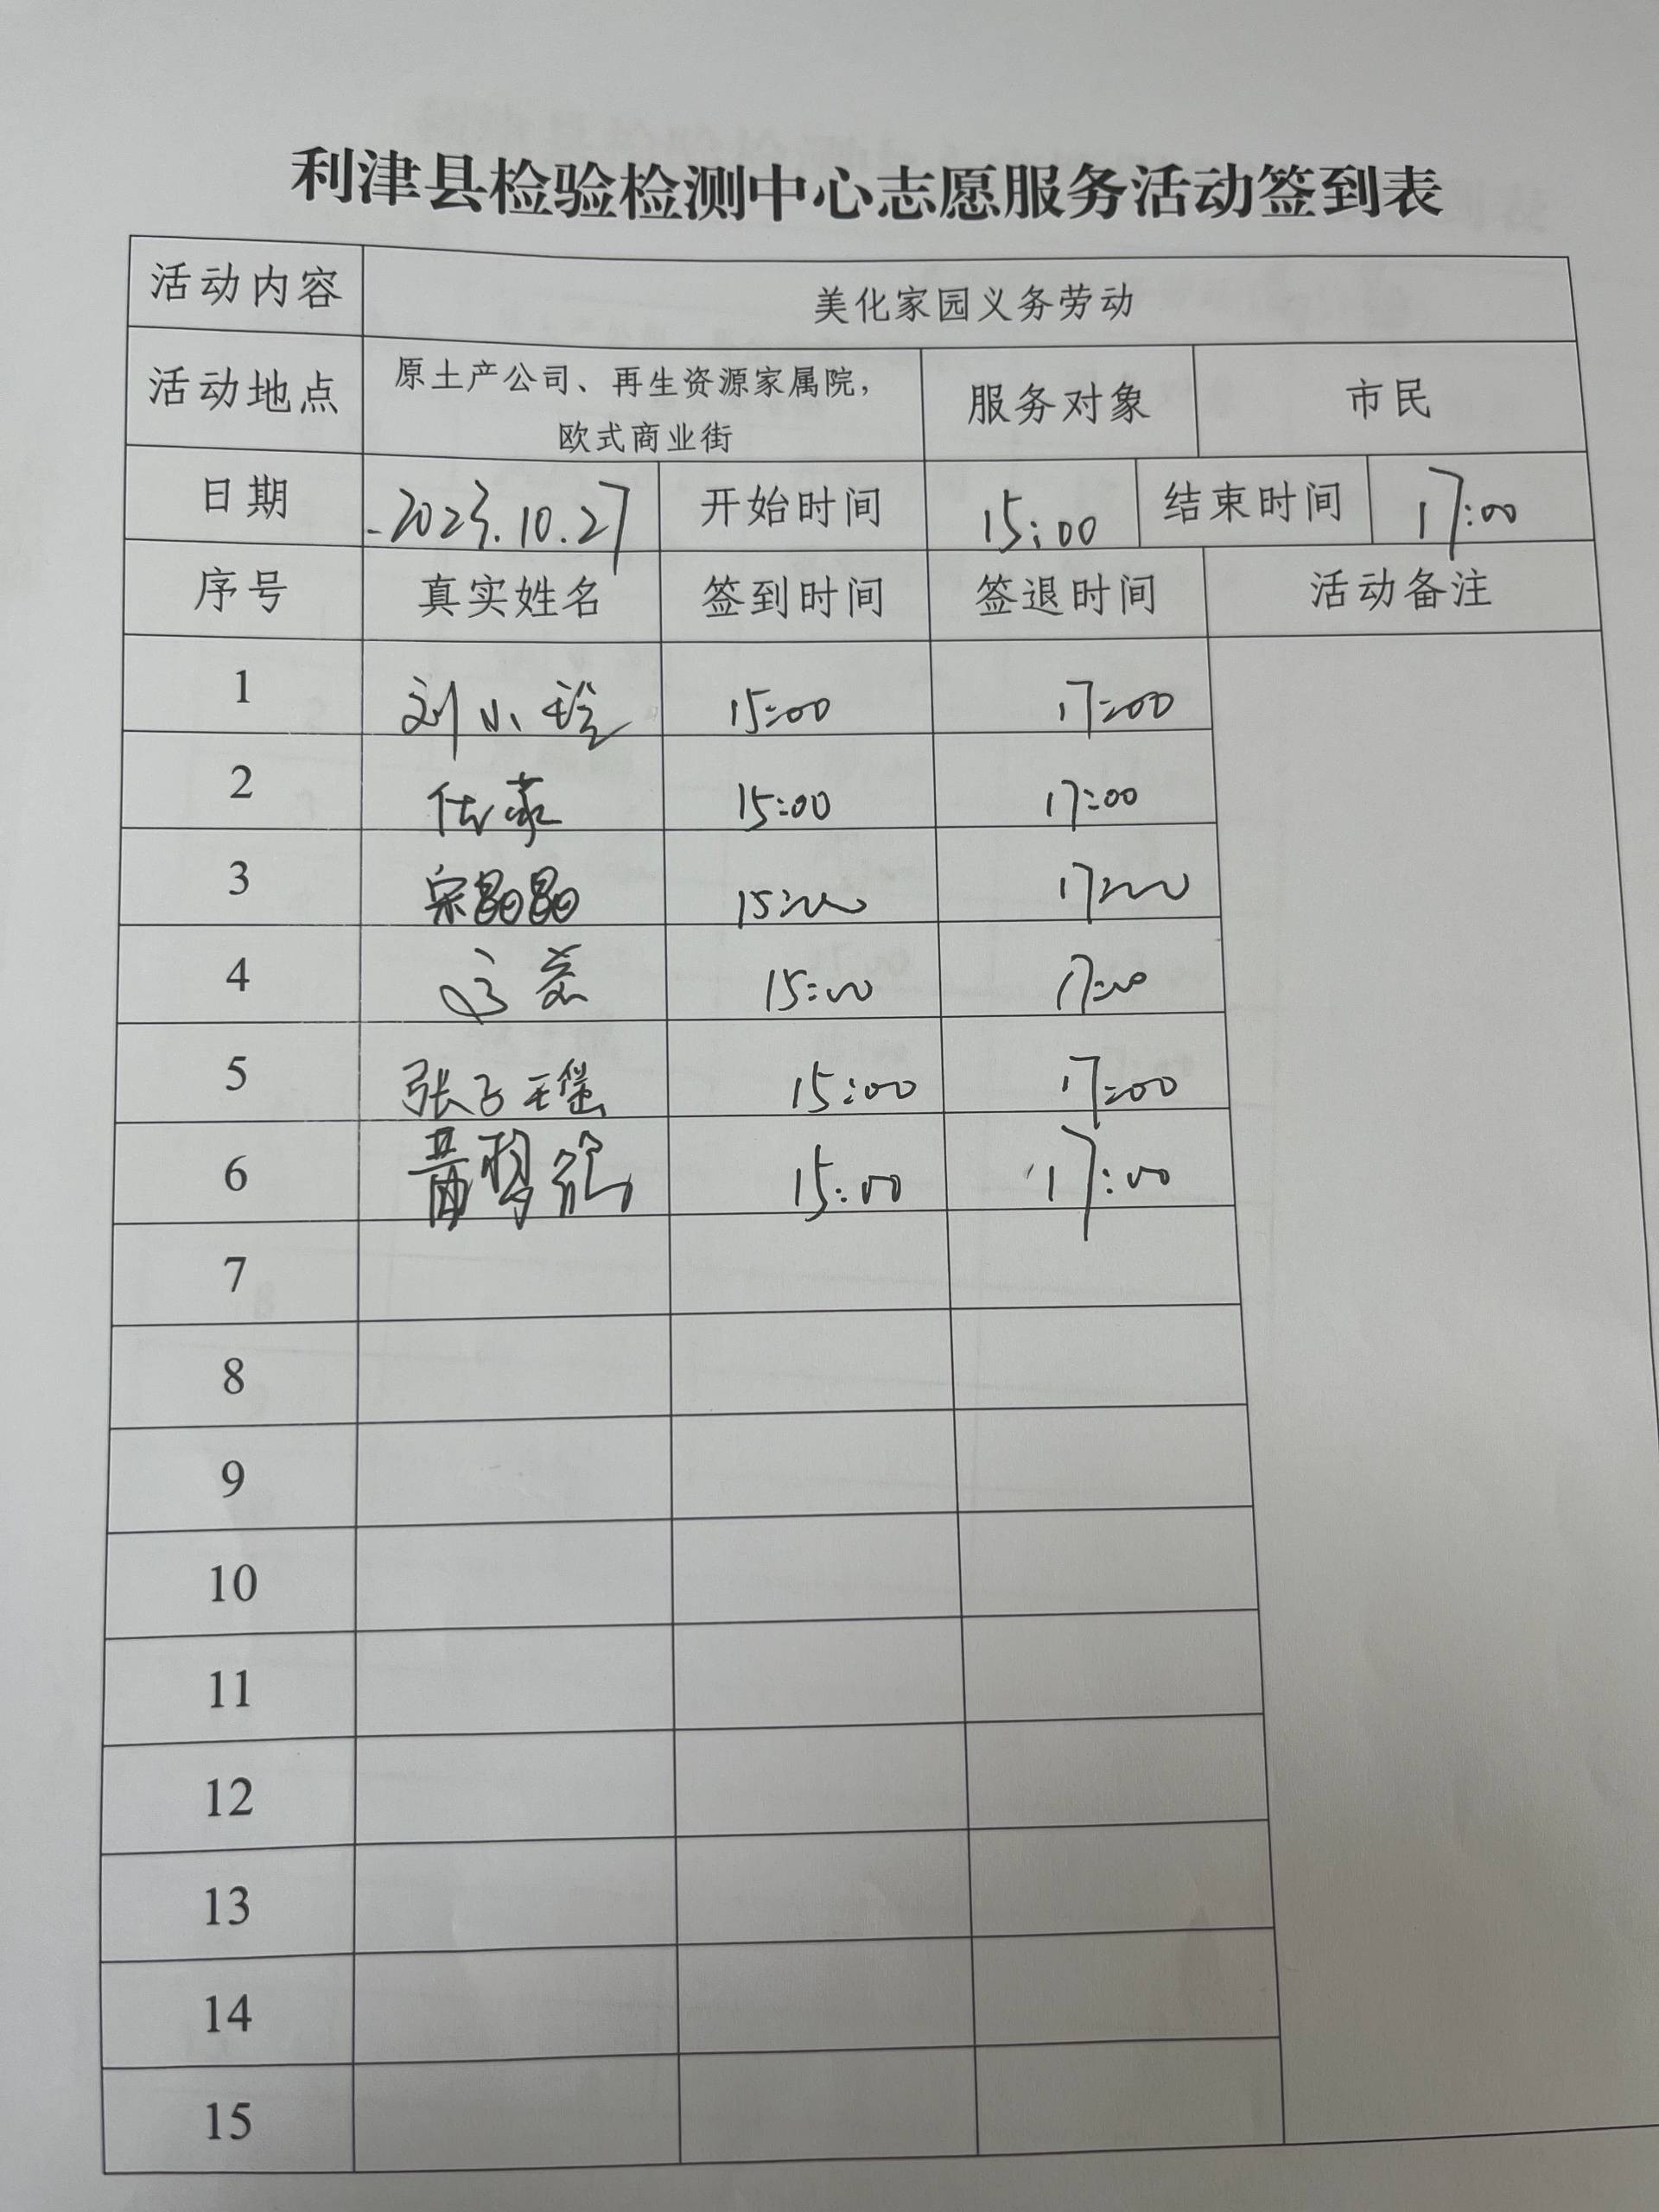 利津县检验检测中心志愿服务活动签到表
活动内容 美化家园义务劳动
活动地点 原土产公司、再生资源家属院，
欧式商业街 服务对象 市民
日期 2023.10.27 开始时间 15:00 结束时间 17:00
序号 真实姓名 签到时间 签退时间 活动备注
1 刘小 15:00 17:00
2 15:00 17:00
3 宋晶晶 15:00 17:00
4 15:00 17:00
5 张子瑶 15:00 17:00
6 黄 15:00 17:00
7
8
9
10
11
12
13
14
15